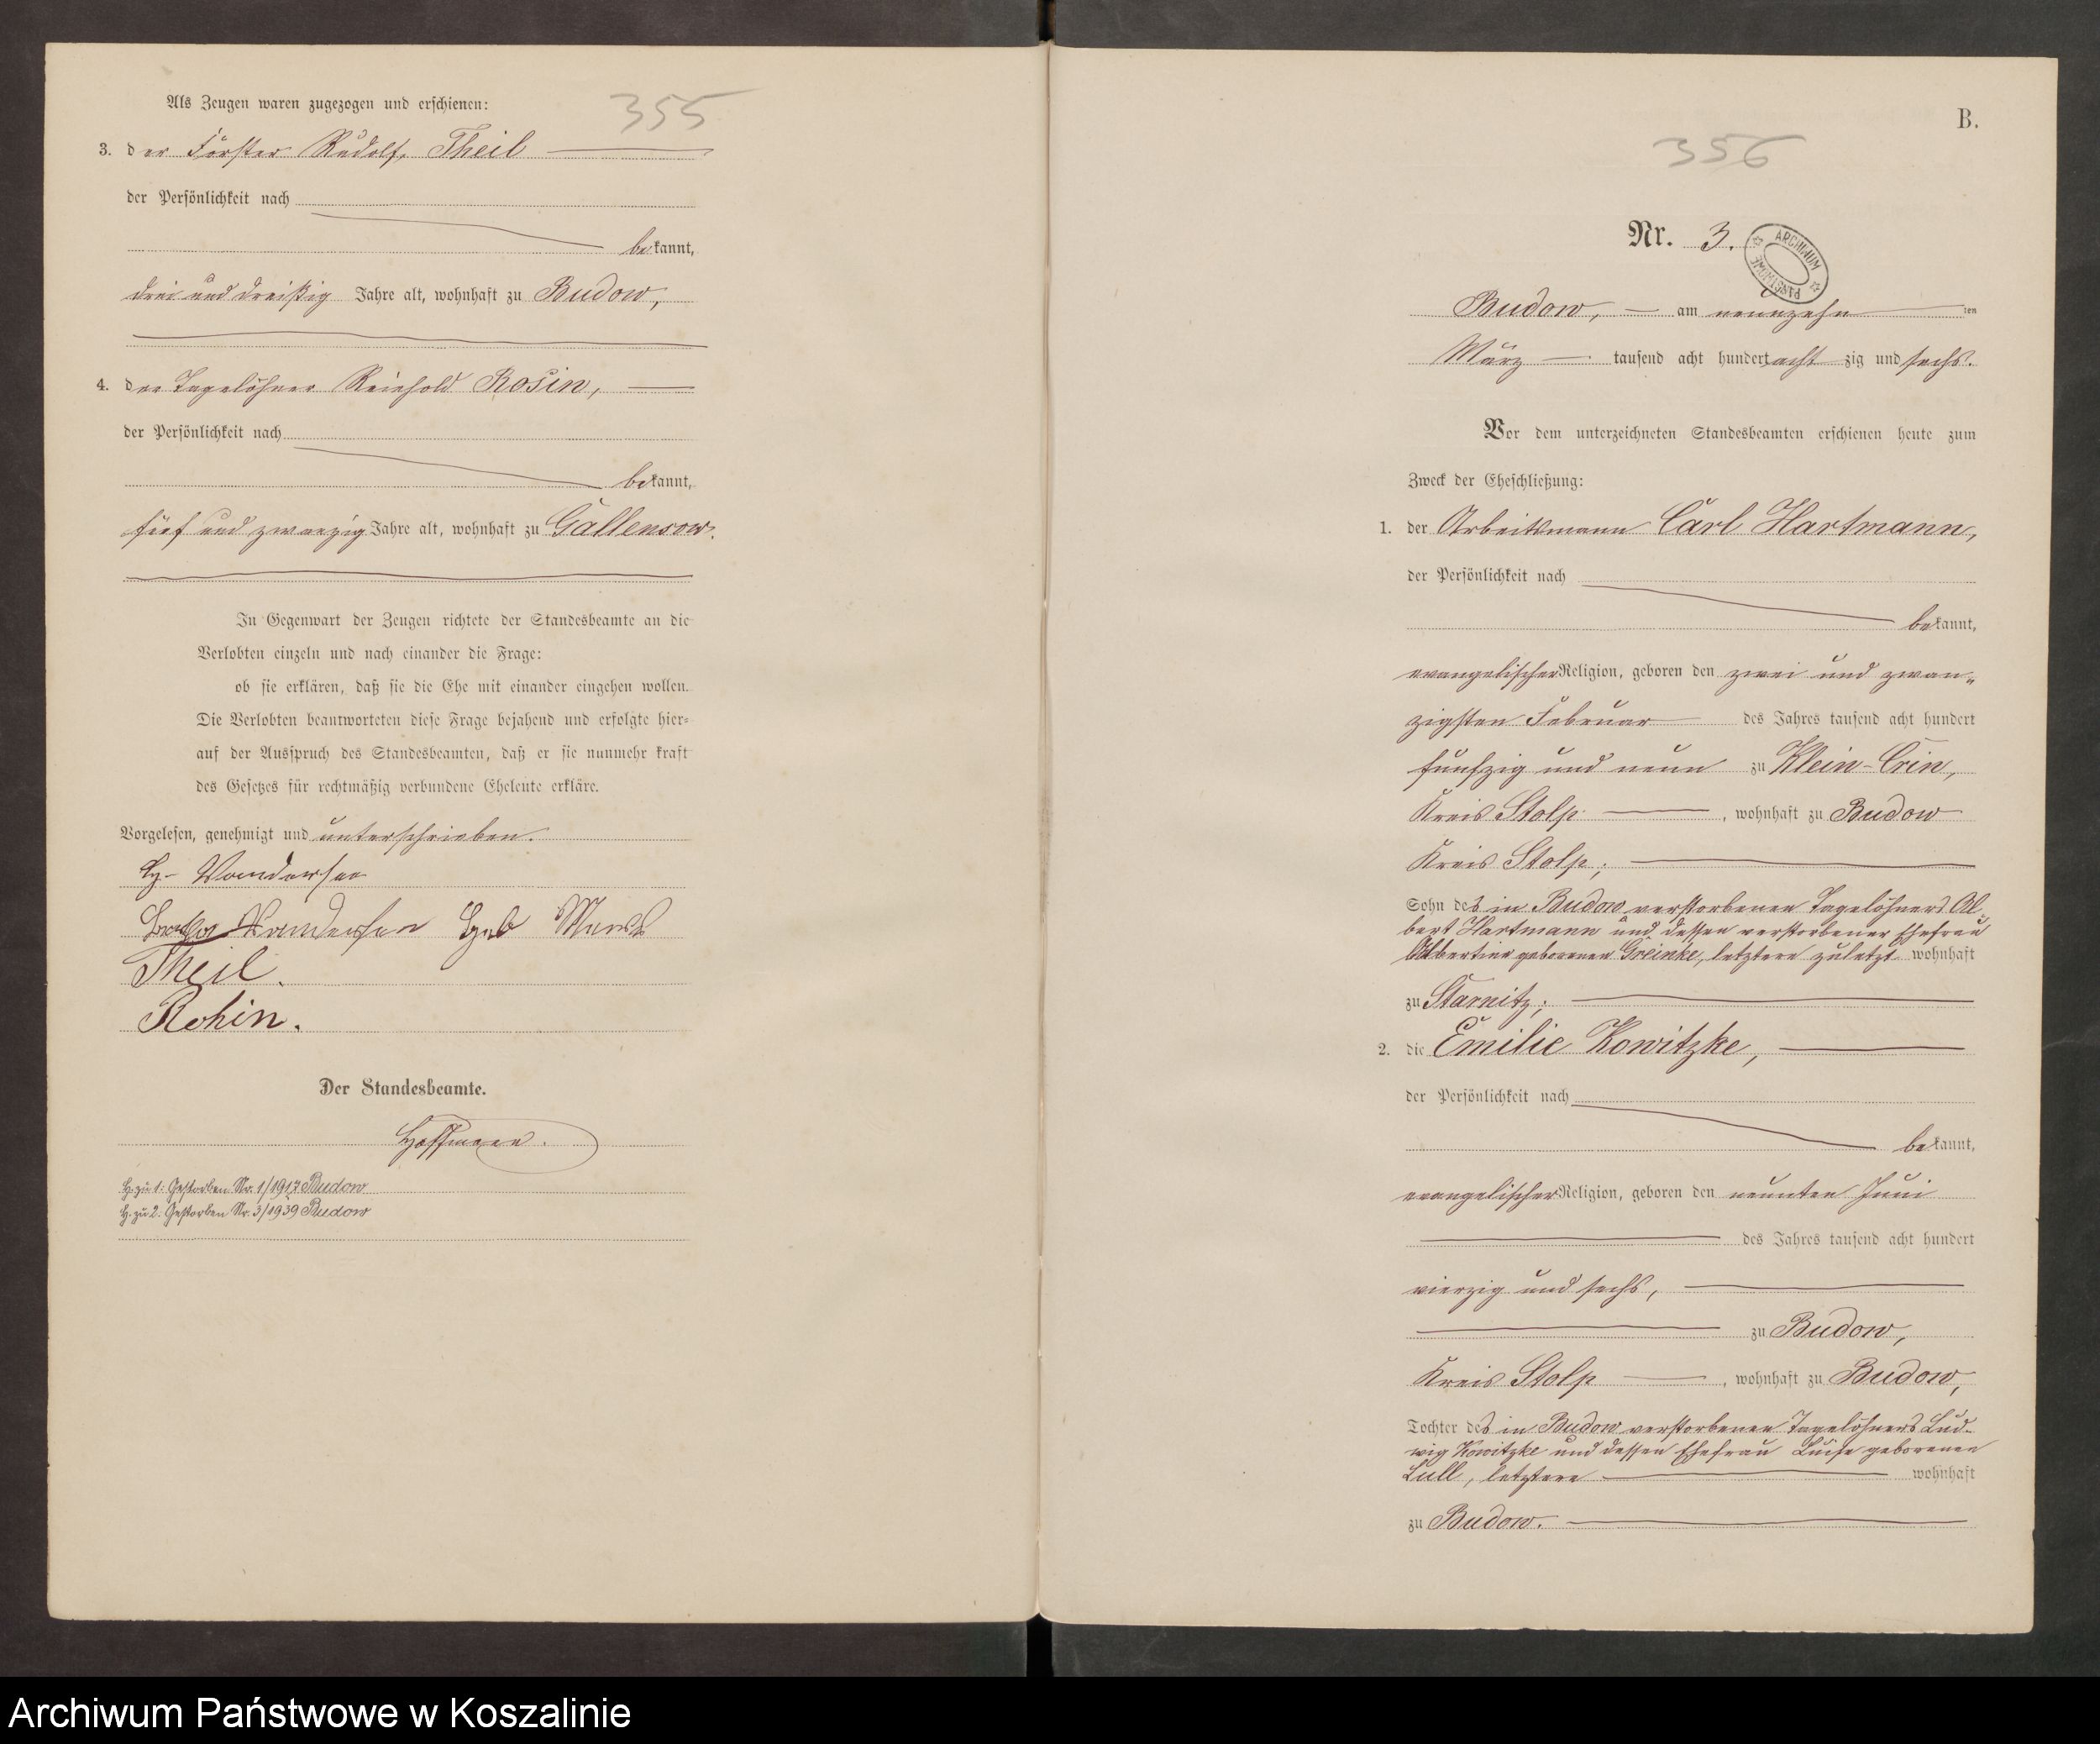 355
Als Zeugen waren zugezogen und erschienen:
3. der Förster Rudolf Theil
der Persönlichkeit nach
bekannt,
drei und dreißig Jahre alt, wohnhaft zu Budow,
4. der Tagelöhner Reinhold Rosin,
der Persönlichkeit nach
bekannt,
fünf und zwanzig Jahre alt, wohnhaft zu Gallensow.
In Gegenwart der Zeugen richtete der Standesbeamte an die
Verlobten einzeln und nach einander die Frage:
ob sie erklären, daß sie die Ehe mit einander eingehen wollen.
Die Verlobten beantworteten diese Frage bejahend und erfolgte hier-
auf der Ausspruch des Standesbeamten, daß er sie nunmehr kraft
des Gesetzes für rechtmäßig verbundene Eheleute erkläre.
Vorgelesen, genehmigt und unterschrieben.
Wandersee
Wandersee geb
Theil.
Rohin.
Der Standesbeamte.
Hoffmann.
H. zu 1: Gestorben Nr. 1/1917 Budow
H. zu 2: Gestorben Nr. 3/1939 Budow
B.
356
Nr. 3.
ARCHIWUM PAŃSTWOWE
Budow, am neunzehn ten
März tausend acht hundert acht zig und sechs.
Vor dem unterzeichneten Standesbeamten erschienen heute zum
Zweck der Eheschließung:
1. der Arbeitsmann Carl Hartmann,
der Persönlichkeit nach
bekannt,
evangelischer Religion, geboren den zwei und zwan-
zigsten Februar des Jahres tausend acht hundert
fünfzig und neun zu Klein-Crin,
Kreis Stolp, wohnhaft zu Budow
Kreis Stolp;
Sohn des in Budow verstorbenen Tagelöhners Al-
bert Hartmann und dessen verstorbener Ehefrau
Albertine geborenen Greinke, letztere zuletzt wohnhaft
zu Starnitz;
2. die Emilie Kowitzke,
der Persönlichkeit nach
bekannt,
evangelischer Religion, geboren den neunten Juni
des Jahres tausend acht hundert
vierzig und sechs,
zu Budow,
Kreis Stolp, wohnhaft zu Budow,
Tochter des in Budow verstorbenen Tagelöhners Lud-
wig Kowitzke und dessen Ehefrau Luise geborenen
Lull, letztere wohnhaft
zu Budow.
Archiwum Państwowe w Koszalinie